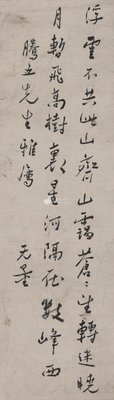 浮雲不共此山齊山靄蒼〻望轉迷曉
月暫飛高樹裏星河隔在數峰西
騰五先生雅屬
无量